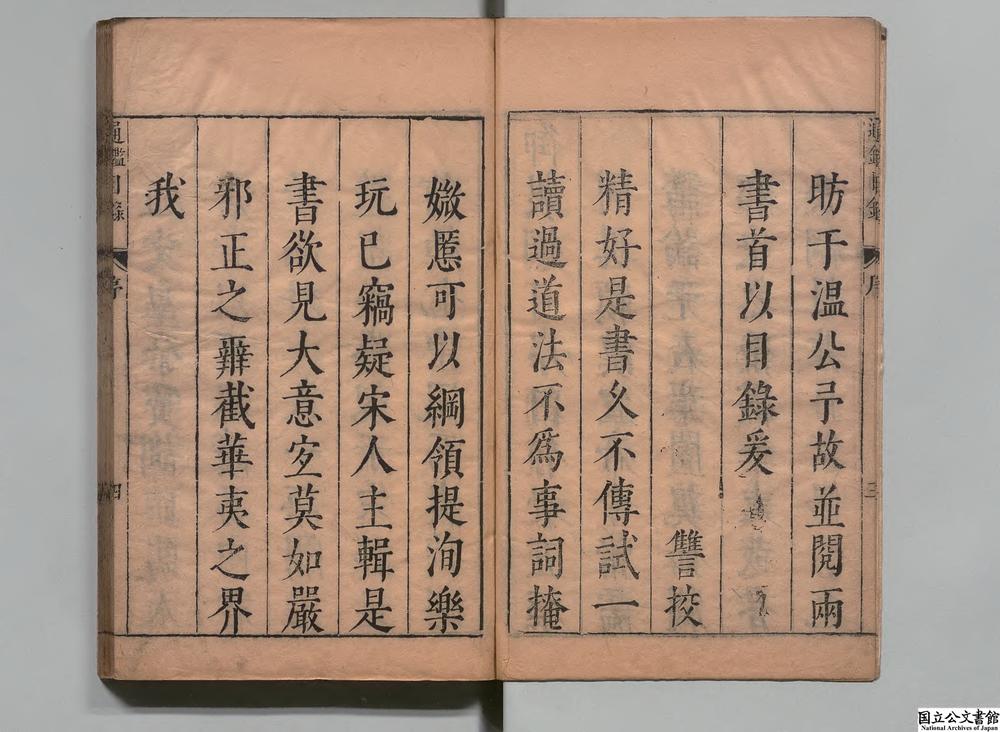 昉于溫公乎故並閱兩
書首以目錄爰
讐挍
精好是書久不傳試一
讀過道法不爲事詞掩
媺慝可以綱領提洵樂
玩已竊疑宋人主輯是
書欲見大意宐莫如嚴
邪正之辭截華夷之界
我
通鑑目錄
序
三
通鑑目錄
序
四
国立公文書館
National Archives of Japan